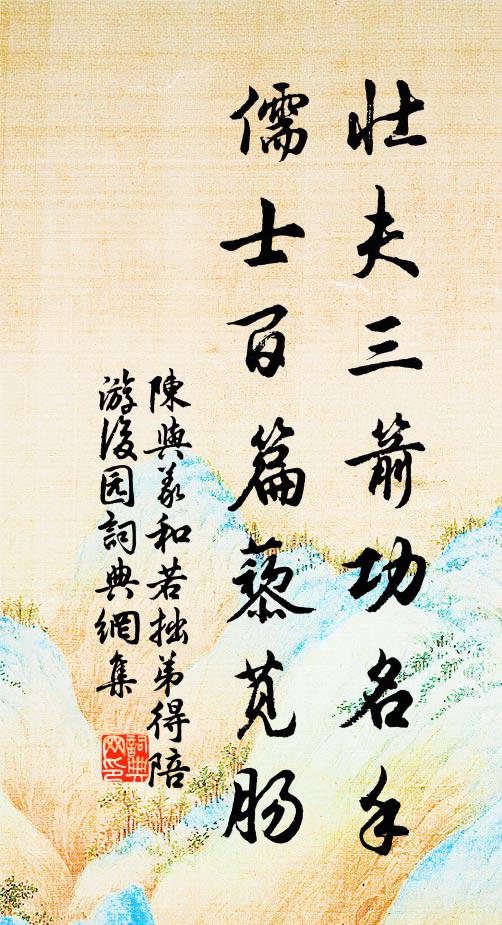 壮夫三箭功名手
儒士百篇藜苋肠
陳與义和若拙弟得陪
游後园詞典網集
詞典网印